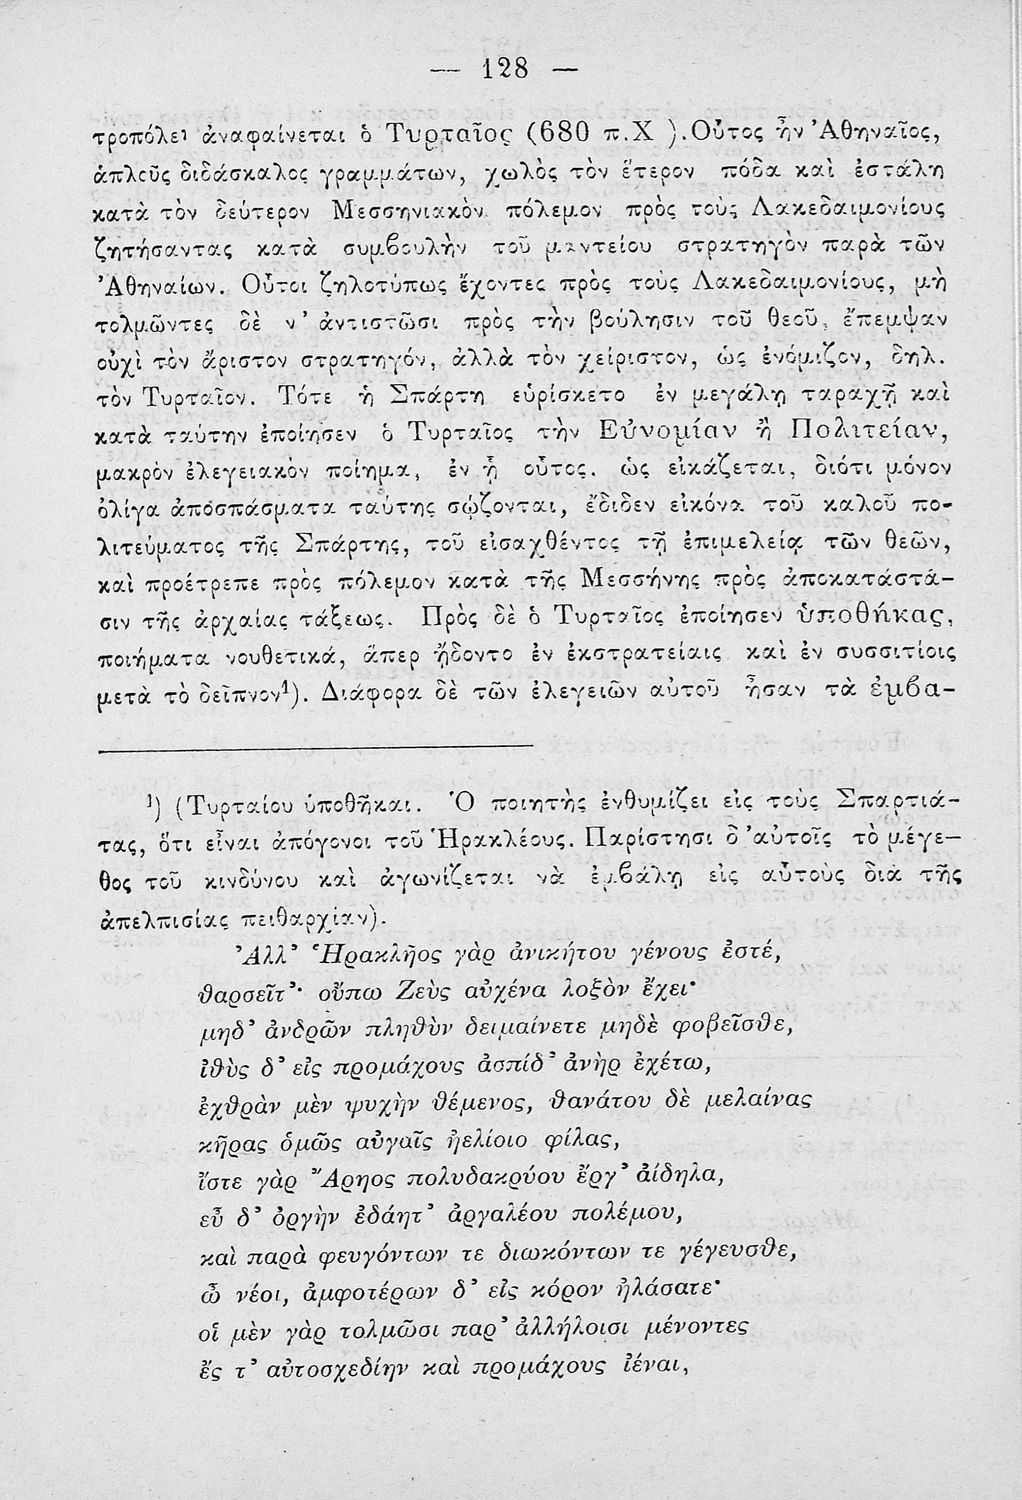 — 128 —
τροπόλει ἀναφαίνεται ὁ Τυρταῖος (680 π.Χ ).Οὗτος ἦν Ἀθηναῖος,
ἁπλοῦς διδάσκαλος γραμμάτων, χωλὸς τὸν ἕτερον πόδα καὶ ἐστάλη
κατὰ τὸν δεύτερον Μεσσηνιακὸν πόλεμον πρὸς τοὺς Λακεδαιμονίους
ζητήσαντας κατὰ συμβουλὴν τοῦ μαντείου στρατηγὸν παρὰ τῶν
Ἀθηναίων. Οὗτοι ζηλοτύπως ἔχοντες πρὸς τοὺς Λακεδαιμονίους, μὴ
τολμῶντες δὲ ν' ἀντιστῶσι πρὸς τὴν βούλησιν τοῦ θεοῦ, ἔπεμψαν
οὐχὶ τὸν ἄριστον στρατηγόν, ἀλλὰ τὸν χείριστον, ὡς ἐνόμιζον, δηλ.
τὸν Τυρταῖον. Τότε ἡ Σπάρτη εὑρίσκετο ἐν μεγάλῃ ταραχῇ καὶ
κατὰ ταύτην ἐποίησεν ὁ Τυρταῖος τὴν Εὐνομίαν ἢ Πολιτείαν,
μακρὸν ἐλεγειακὸν ποίημα, ἐν ᾗ οὗτος. ὡς εἰκάζεται, διότι μόνον
ὀλίγα ἀποσπάσματα ταύτης σῴζονται, ἔδιδεν εἰκόνα τοῦ καλοῦ πο-
λιτεύματος τῆς Σπάρτης, τοῦ εἰσαχθέντος τῇ ἐπιμελείᾳ τῶν θεῶν,
καὶ προέτρεπε πρὸς πόλεμον κατὰ τῆς Μεσσήνης πρὸς ἀποκατάστα-
σιν τῆς ἀρχαίας τάξεως. Πρὸς δὲ ὁ Τυρταῖος ἐποίησεν ὑποθήκας,
ποιήματα νουθετικά, ἅπερ ᾔδοντο ἐν ἐκστρατείαις καὶ ἐν συσσιτίοις
μετὰ τὸ δεῖπνον¹). Διάφορα δὲ τῶν ἐλεγειῶν αὐτοῦ ἦσαν τὰ ἐμβα-
¹) (Τυρταίου ὑποθῆκαι. Ὁ ποιητὴς ἐνθυμίζει εἰς τοὺς Σπαρτιά-
τας, ὅτι εἶναι ἀπόγονοι τοῦ Ἡρακλέους. Παρίστησι δ'αὐτοῖς τὸ μέγε-
θος τοῦ κινδύνου καὶ ἀγωνίζεται νὰ ἐμβάλῃ εἰς αὐτοὺς διὰ τῆς
ἀπελπισίας πειθαρχίαν).
Ἀλλ' Ἡρακλῆος γὰρ ἀνικήτου γένους ἐστέ,
θαρσεῖτ'· οὔπω Ζεὺς αὐχένα λοξὸν ἔχει·
μηδ' ἀνδρῶν πληθὺν δειμαίνετε μηδὲ φοβεῖσθε,
ἰθὺς δ' εἰς προμάχους ἀσπίδ' ἀνὴρ ἐχέτω,
ἐχθρὰν μὲν ψυχὴν θέμενος, θανάτου δὲ μελαίνας
κῆρας ὁμῶς αὐγαῖς ἠελίοιο φίλας,
ἴστε γὰρ Ἄρηος πολυδακρύου ἔργ' ἀίδηλα,
εὖ δ' ὀργὴν ἐδάητ' ἀργαλέου πολέμου,
καὶ παρὰ φευγόντων τε διωκόντων τε γέγευσθε,
ὦ νέοι, ἀμφοτέρων δ' εἰς κόρον ἠλάσατε·
οἳ μὲν γὰρ τολμῶσι παρ' ἀλλήλοισι μένοντες
ἔς τ' αὐτοσχεδίην καὶ προμάχους ἰέναι,